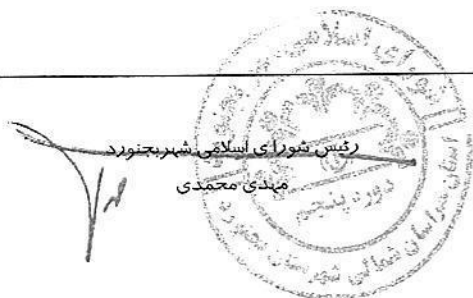 رئیس شورای اسلامی شهربجنورد
مهدی محمدی
شورای اسلامی شهر بجنورد
دوره پنجم
استان خراسان شمالی شهرستان بجنورد